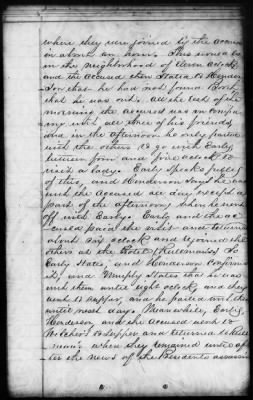 where they were joined by the accused
in about an hour. This would be
in the neighborhood of eleven o'clock,
and the accused then stated to Hender-
son that he had not found Booth,
that he was out. All the rest of the
morning the accused was in compa-
ny with all three of his friends,
and in the afternoon he only parted
with the others to go with Early
between four and five o'clock to
visit a lady. Early speaks fully
of this, and Henderson says he was
with the accused all day except a
part of the afternoon, when he went
off with Early. Early and the ac-
cused paid the visit and returned
about six o'clock and rejoined the
others at the hotel (Rullman's) So
Early states, and Henderson confirms
it, and Murphy states that he was
with them until eight o'clock and they
went to supper, and he parted with them
until next day. Meanwhile, Early,
Henderson, and the accused went to
Welcher's to supper and returned to Rull-
man's when they remained until af-
ter the news of the Presidents assassin